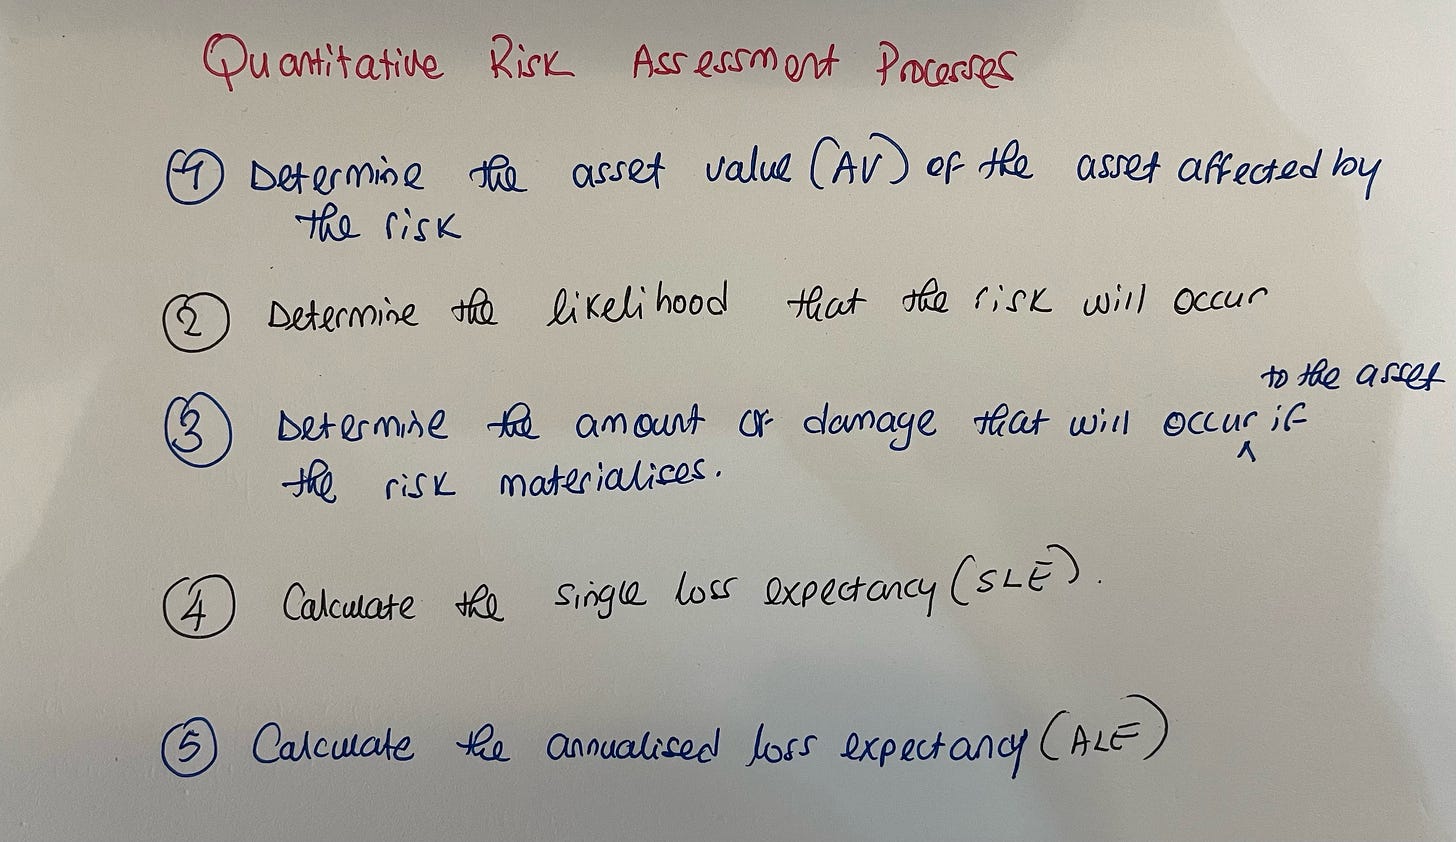 Quantitative Risk Assessment Processes
① Determine the asset value (AV) of the asset affected by
the risk
② Determine the likelihood that the risk will occur
to the asset
③ Determine the amount of damage that will occur ^ if
the risk materialises.
④ Calculate the single loss expectancy (SLE).
⑤ Calculate the annualised loss expectancy (ALE)